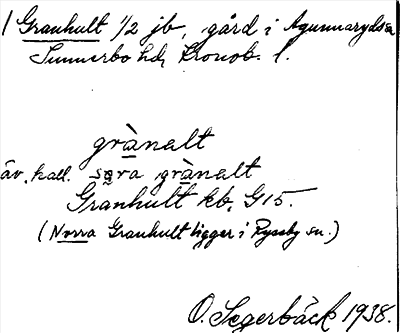 1 Granhult 1/2 jb, gård i Agunnaryds sn
Sunnerbo hd, Kronob. l.
grànalt
äv. kall. sø̰ra grànalt
Granhult kb. G15.
(Norra Granhult ligger i Ryssby sn.)
O. Segerbäck 1938.